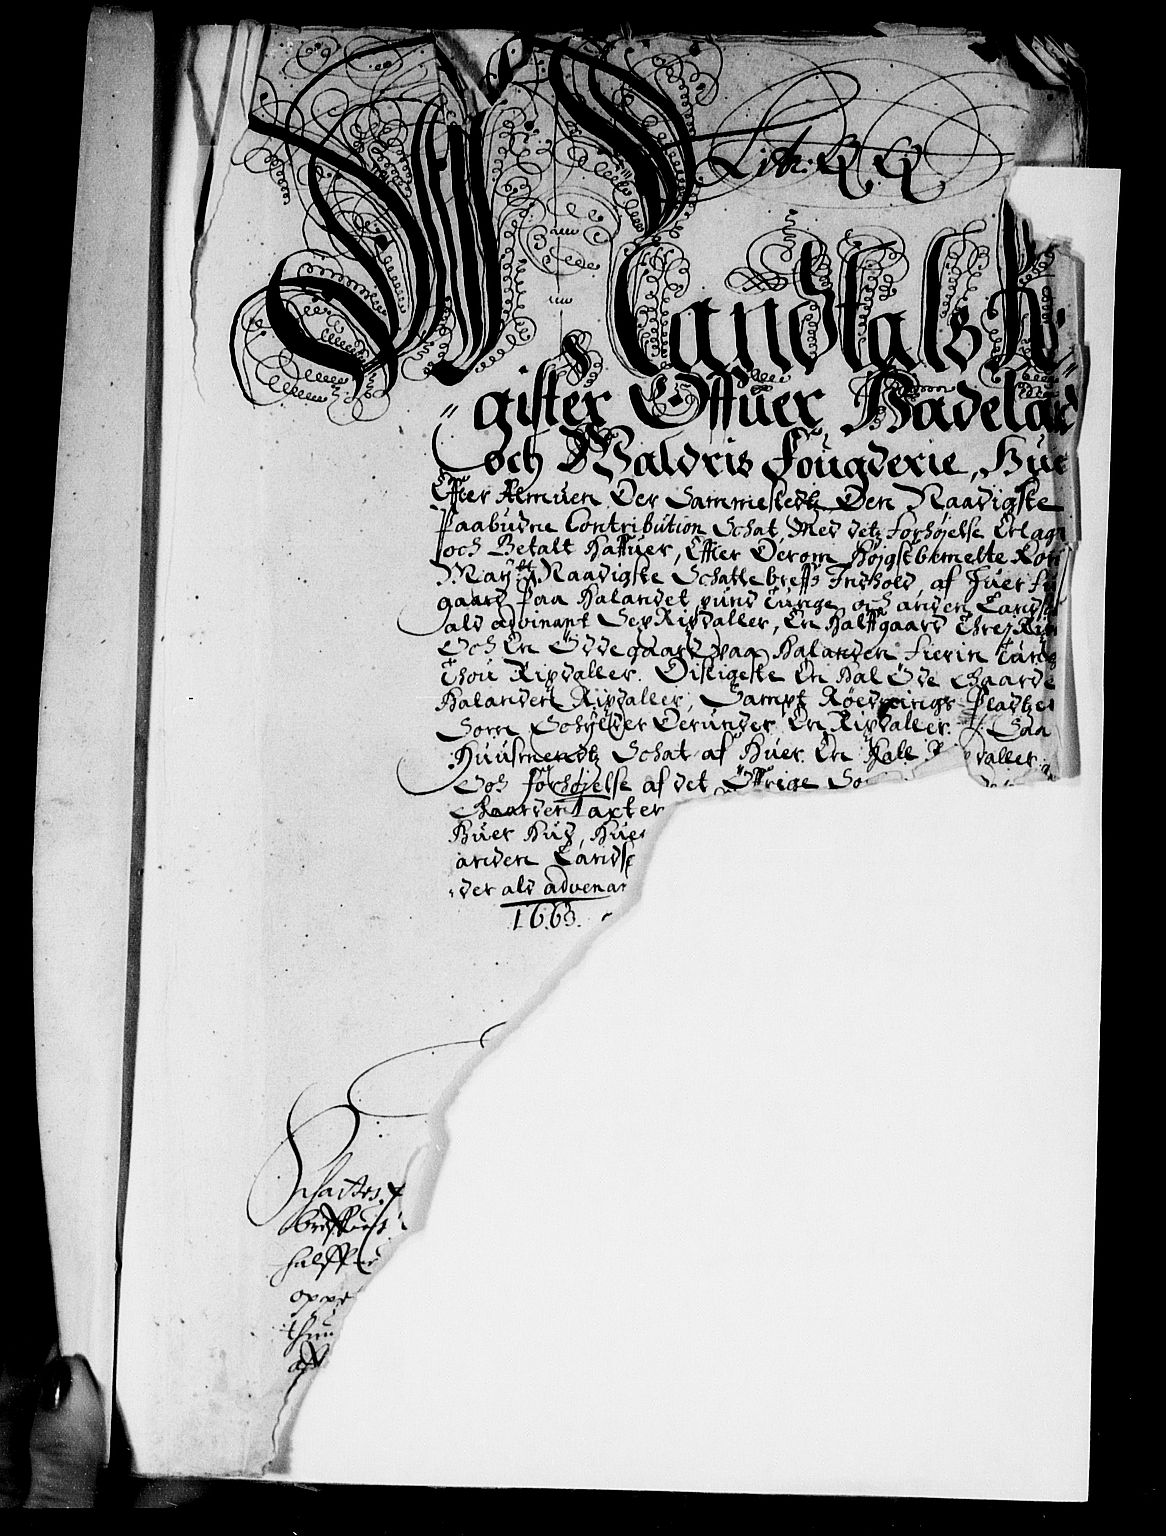 Litr: Q Q
Mandtals Re-
gister Offuer Hadeland
och Waldris Fougderie, Hue
Effter Almuen Der Sammestedtz Den Naadigste
Paabudne Contribution Schat, Med detz forhøjelse Erlagt
och Betalt Haffuer, Effter Derom Højgstbemelte Kon
May:tz Naadigste Schattebreffs Indhold, af Huer fu
gaard paa Halandet pund Tunge och anden Landsk
ald advinant Sex Rixdaller, En Halffgaard Threj Rix
Och En Ødegaard paa Halanden fierin Tung
Thou Rixdaller. Disligeste En Hal Øde Gaarde
Halanden Rixdaller, Sampt Røednings Pladtzer
Som Schylder Derunder En Rixdaller. Saa
Huusmendtz Schat af Huer En Hall daller
Och forhøjelse af det Øffrige So
Gaarden Taxter
Huer Hus, Hue
anden Landsk
der ald advenan
1663.
Schattes
breffue
halff
oppe
thu
aff